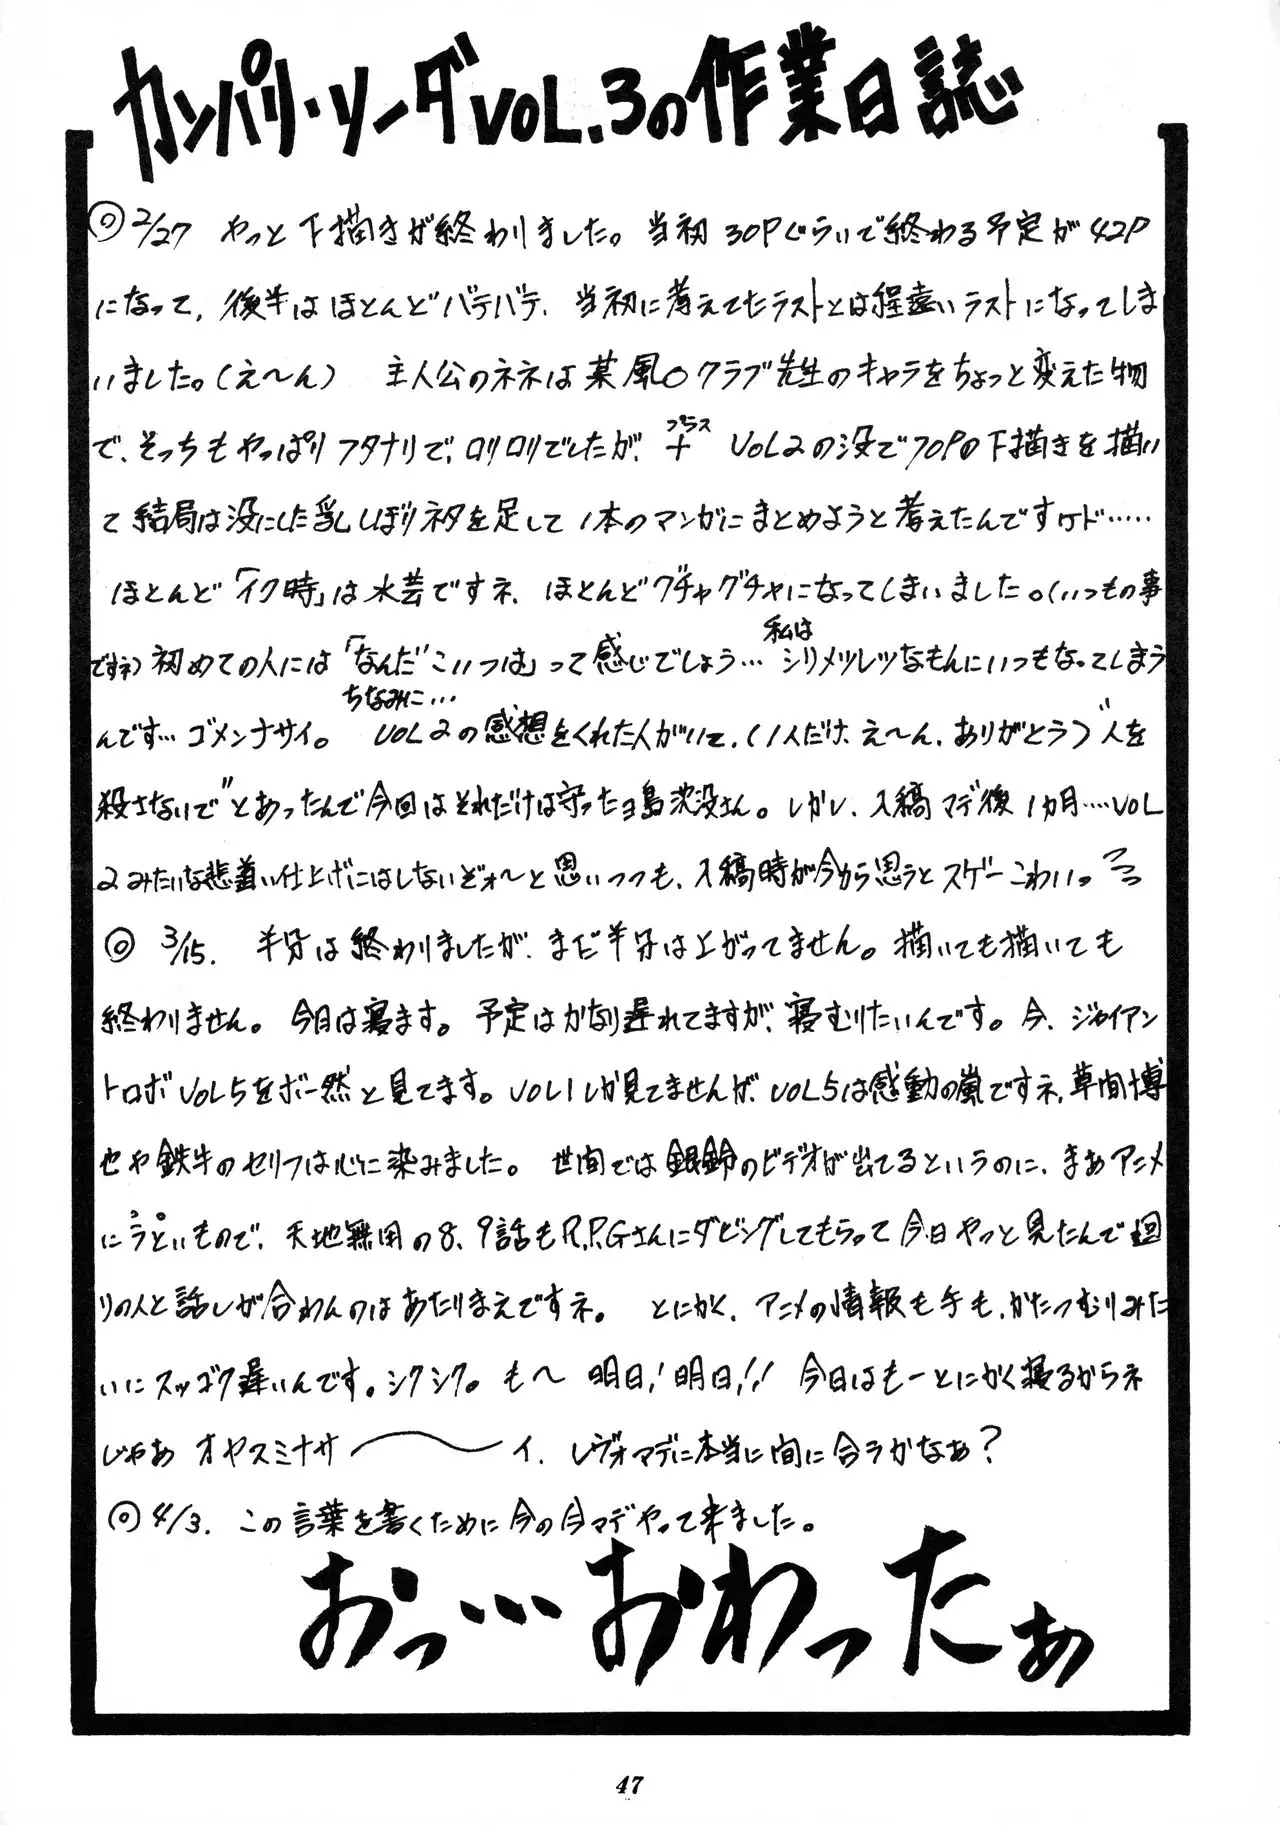 カンパリ・ソーダVOL.3の作業日誌
◎2/27 やっと下描きが終わりました。当初30Pぐらいで終わる予定が42P
になって、後半はほとんどバテバテ、当初に考えてたラストとは程遠いラストになってしま
いました。(え〜ん) 主人公のネネは某風○クラブ先生のキャラをちょっと変えた物
プラス
で、そっちもやっぱりフタナリで、ロリロリでしたが、+ VOL2の没で70Pの下描きを描い
て結局は没にした乳しぼりネタを足して1本のマンガにまとめようと考えたんですけド……
ほとんど「イク時」は水芸ですネ、ほとんどグチャグチャになってしまいました。(いつもの事
私は
ですネ)初めての人には「なんだ"こいつは」って感じでしょう…シリメツレツなもんにいつもなってしまう
ちなみに…
んです…ゴメンナサイ。 VOL2の感想をくれた人がいて、(1人だけ、え〜ん、ありがとう)"人を
殺さないで"とあったんで今回はそれだけは守ったヨ島沈没さん。しかし、入稿マデ後1カ月……VOL
2みたいな悲惨い仕上げにはしないぞォ〜と思いつつも、入稿時が今から思うとスゲーこわいっ
◎ 3/15. 半分は終わりましたが、まだ半分は上がってません。描いても描いても
終わりません。今日は寝ます。予定はかなり遅れてますが、寝むりたいんです。今、ジャイアン
トロボVOL5をボー然と見てます。VOL1しか見てませんが、VOL5は感動の嵐ですネ、草間博
也や鉄牛のセリフは心に染みました。世間では銀鈴のビデオが出てるというのに、まあアニメ
にうといもので、天地無用の8、9話もR.P.Gさんにダビングしてもらって今日やっと見たんで廻
りの人と話しが合わんのはあたりまえですネ。 とにかく、アニメの情報も手も、かたつむりみた
いにスッゴク遅いんです。シクシク。も〜 明日!明日!! 今日はもーとにかく寝るからネ
じゃあ オヤスミナサ〜イ、レヴォマデに本当に間に合うかなぁ?
◎4/3. この言葉を書くために今の今マデやって来ました。
おっ…おわったぁ
47